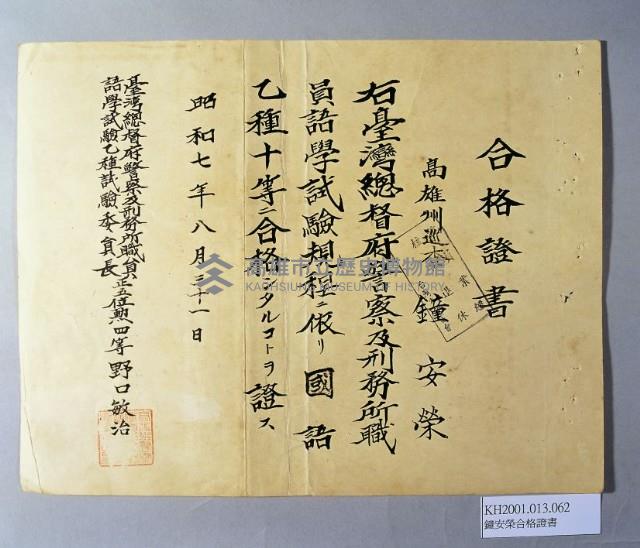 合格證書
高雄州巡查 鐘安榮
右臺灣總督府警察及刑務所職
員語學試驗規程ニ依リ國語
乙種十等ニ合格シタルコトヲ證ス
昭和七年八月三十一日
臺灣總督府警察及刑務所職員
語學試驗乙種試驗委員長
正五位勲四等 野口敏治
高雄市立歷史博物館
KAOHSIUNG MUSEUM OF HISTORY
KH2001.013.062
鐘安榮合格證書